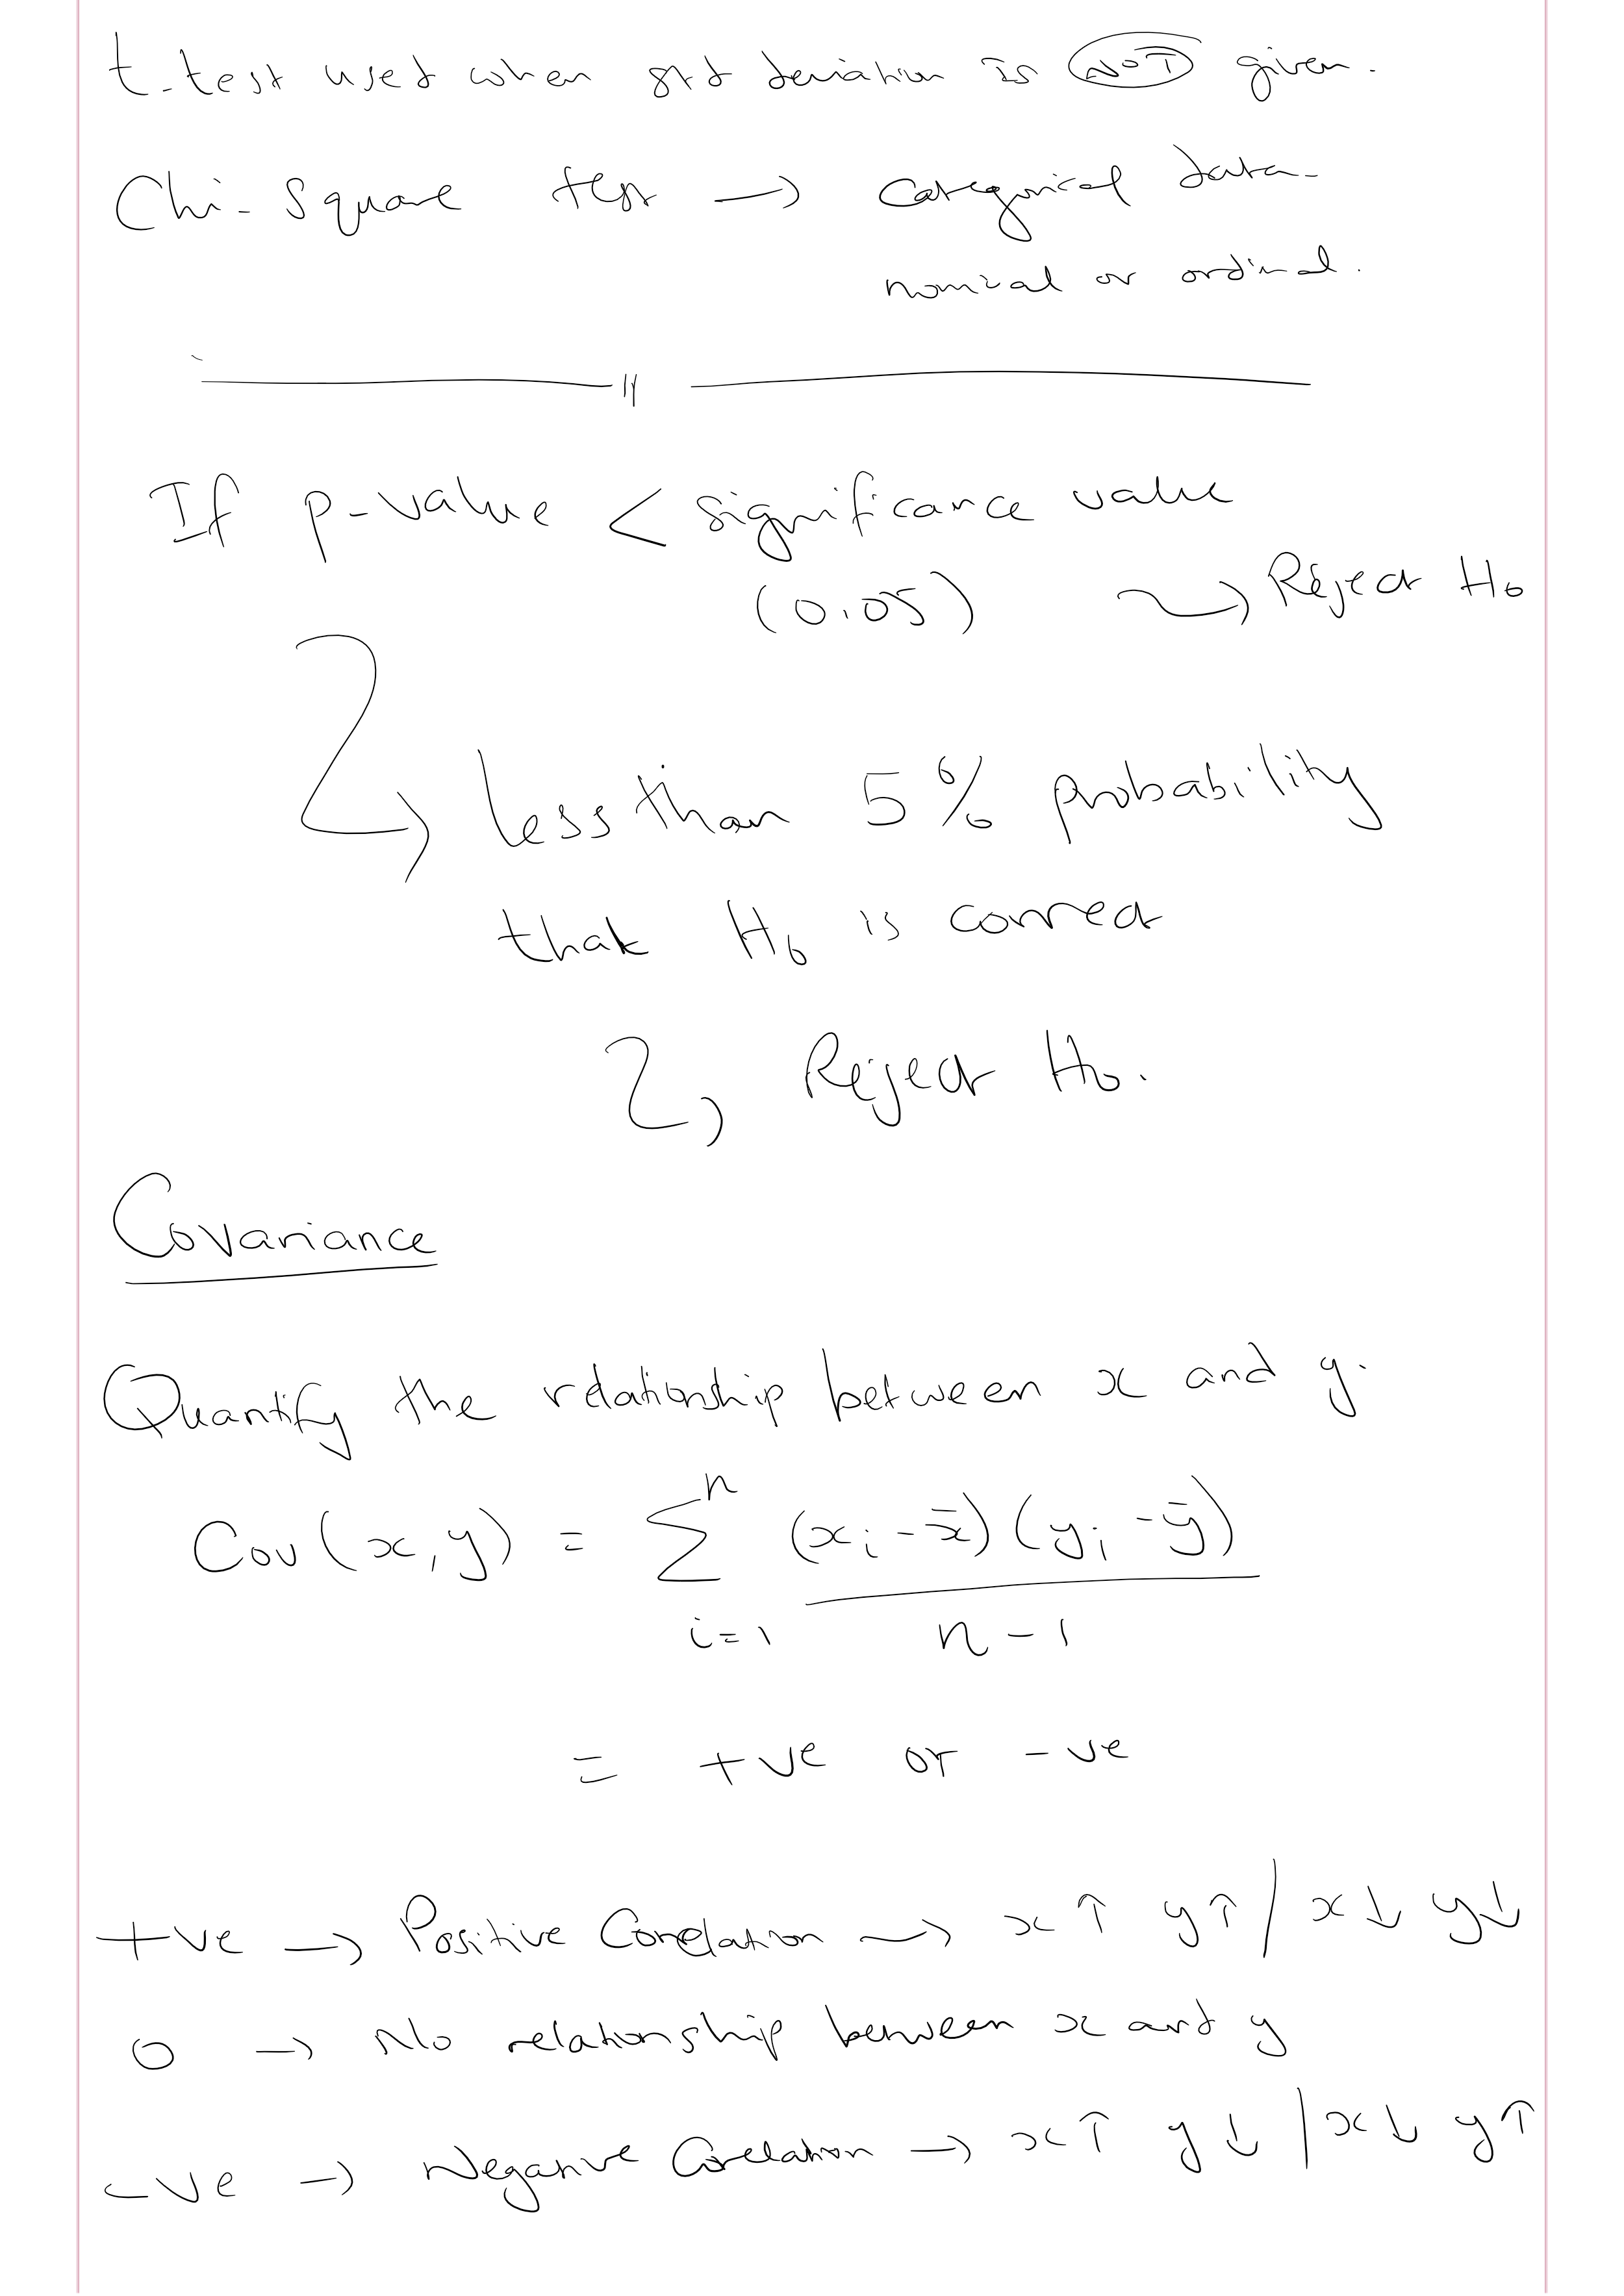 t-test used when std deviation is NOT given.
Chi-Square test → Categorical data-
nominal or ordinal.
If p-value < significance value
(0.05) → Reject H₀
→ less than 5% probability
that H₀ is correct
→ Reject H₀.
Covariance
Quantify the relationship between x and y.
Cov(x,y) = Σ (xᵢ - x̄)(yᵢ - ȳ)
n
i=1 n-1
= +ve or -ve
+ve → Positive Correlation → x↑ y↑ / x↓ y↓
0 → No relationship between x and y
-ve → Negative Correlation → x↑ y↓ / x↓ y↑